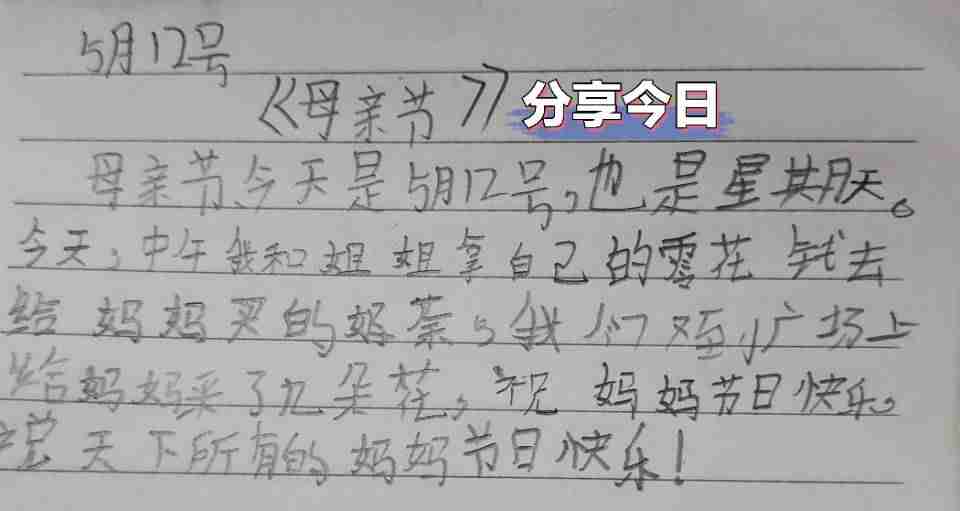 5月12号
《母亲节》 分享今日
母亲节、今天是5月12号,也是星期天。
今天,中午我和姐姐拿自己的零花钱去
给妈妈买的奶茶。我们又到广场上
给妈妈采了九朵花,祝妈妈节日快乐。
天下所有的妈妈节日快乐!